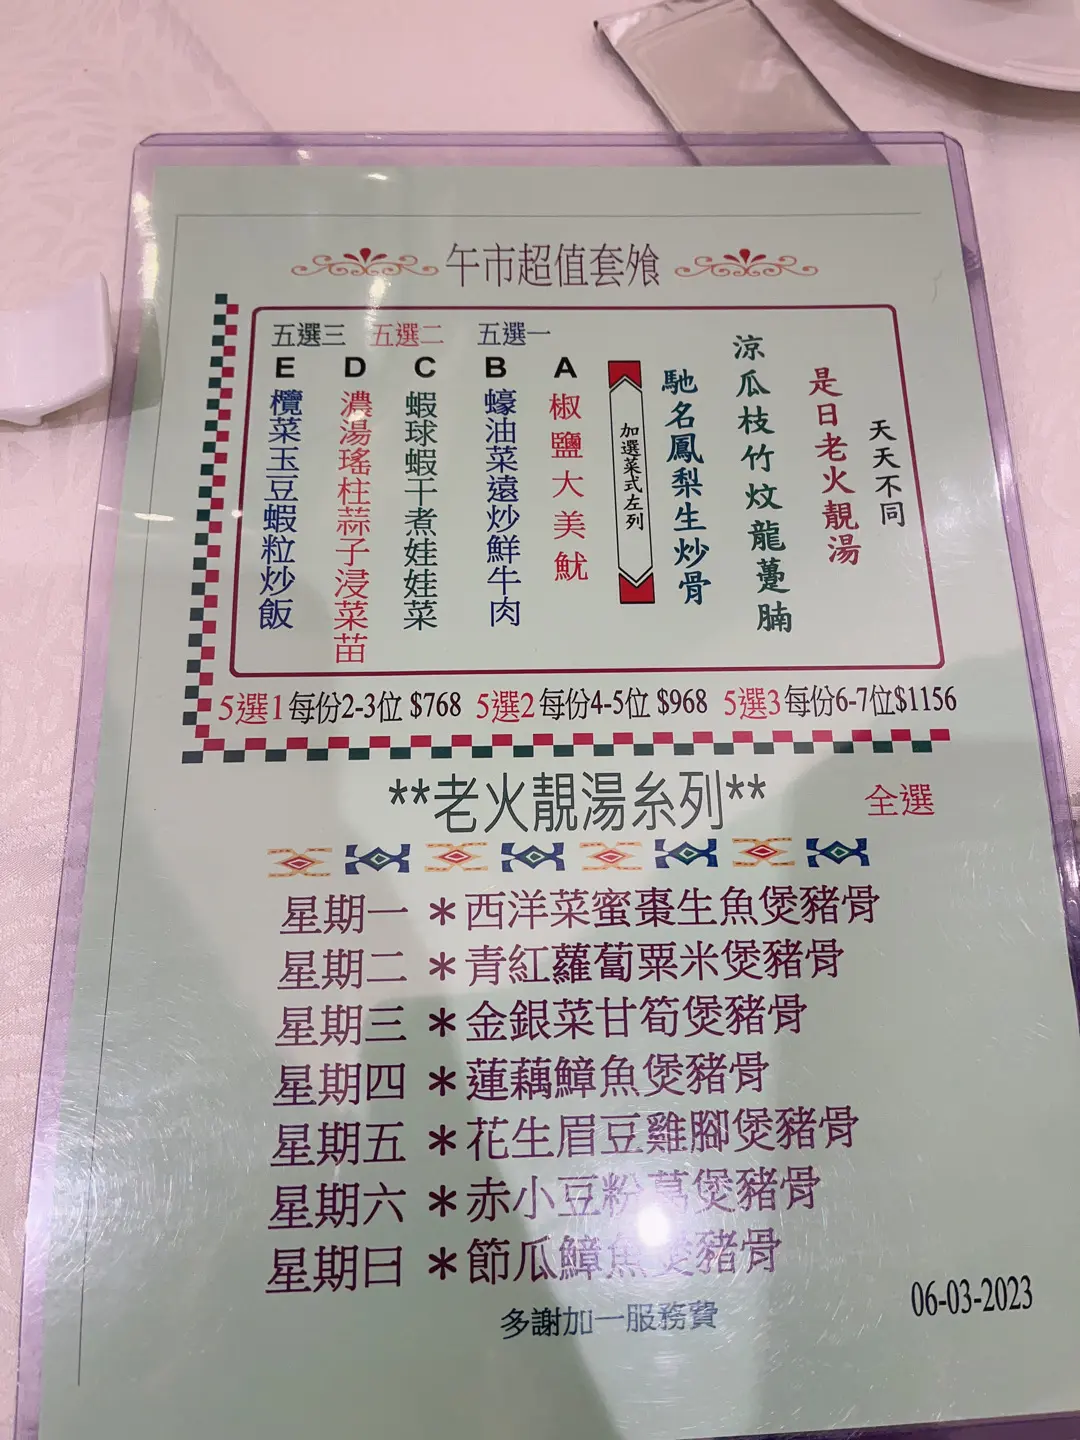 午市超值套飧
天天不同
是日老火靚湯
涼瓜枝竹炆龍躉腩
馳名鳳梨生炒骨
加選菜式左列
五選一
五選二
五選三
A
椒鹽大美魷
B
蠔油菜遠炒鮮牛肉
C
蝦球蝦干煮娃娃菜
D
濃湯瑤柱蒜子浸菜苗
E
欖菜玉豆蝦粒炒飯
5選1每份2-3位 $768 5選2每份4-5位 $968 5選3每份6-7位$1156
**老火靚湯糸列** 全選
星期一 *西洋菜蜜棗生魚煲豬骨
星期二 *青紅蘿蔔粟米煲豬骨
星期三 *金銀菜甘筍煲豬骨
星期四 *蓮藕鱆魚煲豬骨
星期五 *花生眉豆雞腳煲豬骨
星期六 *赤小豆粉葛煲豬骨
星期日 *節瓜鱆魚煲豬骨
多謝加一服務費
06-03-2023